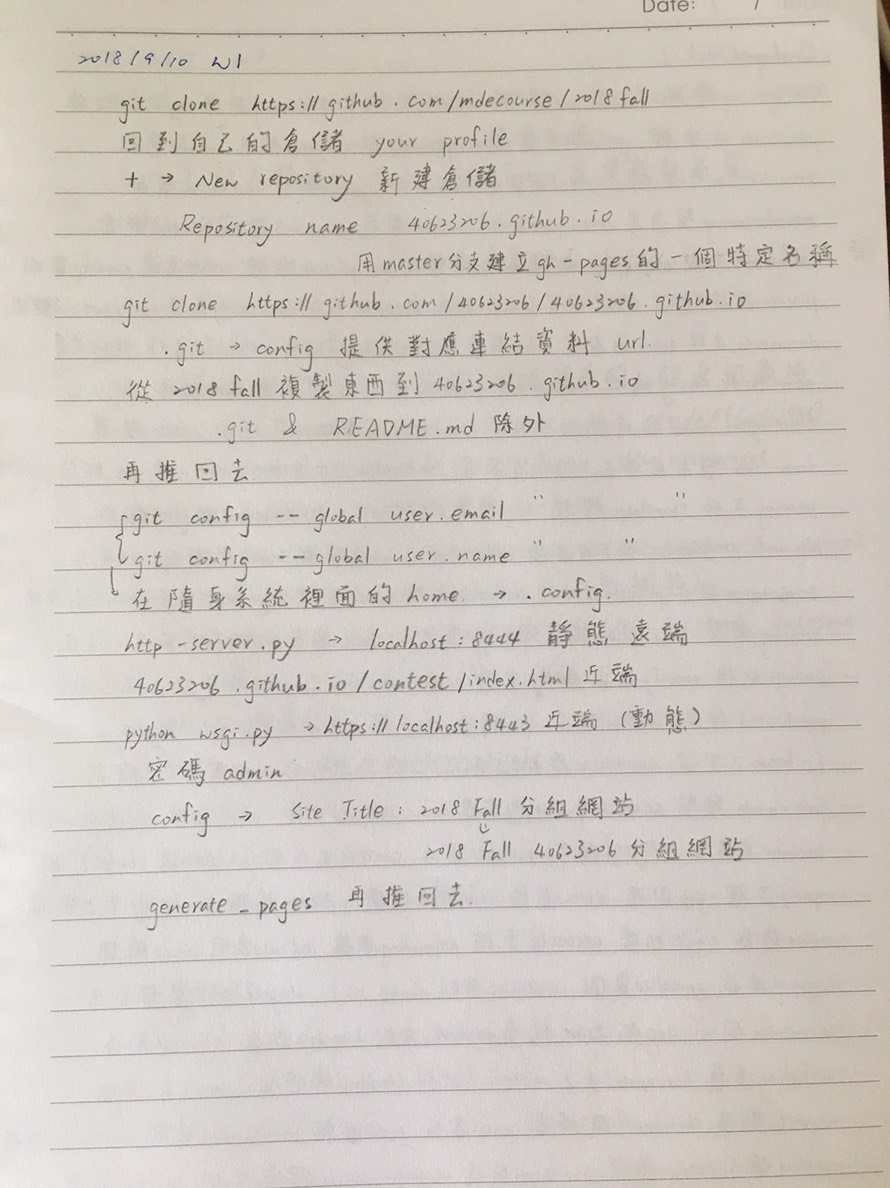 Date: /
2018/9/10 W1
git clone https://github.com/mdecourse/2018fall
回到自己的倉儲 your profile
+ → New repository 新建倉儲
Repository name 40623206.github.io
用master分支建立gh-pages的一個特定名稱
git clone https://github.com/40623206/40623206.github.io
.git → config 提供對應連結資料 url.
從 2018 fall 複製東西到 40623206.github.io
.git & README.md 除外
再推回去
git config --global user.email " "
git config --global user.name " "
在隨身系統裡面的home → .config.
http-server.py → localhost:8444 靜態 遠端
40623206.github.io/contest/index.html 近端
python wsgi.py → https://localhost:8443 近端 (動態)
密碼 admin
config → Site Title: 2018 Fall 分組網站
↓
2018 Fall 40623206 分組網站
generate_pages 再推回去.